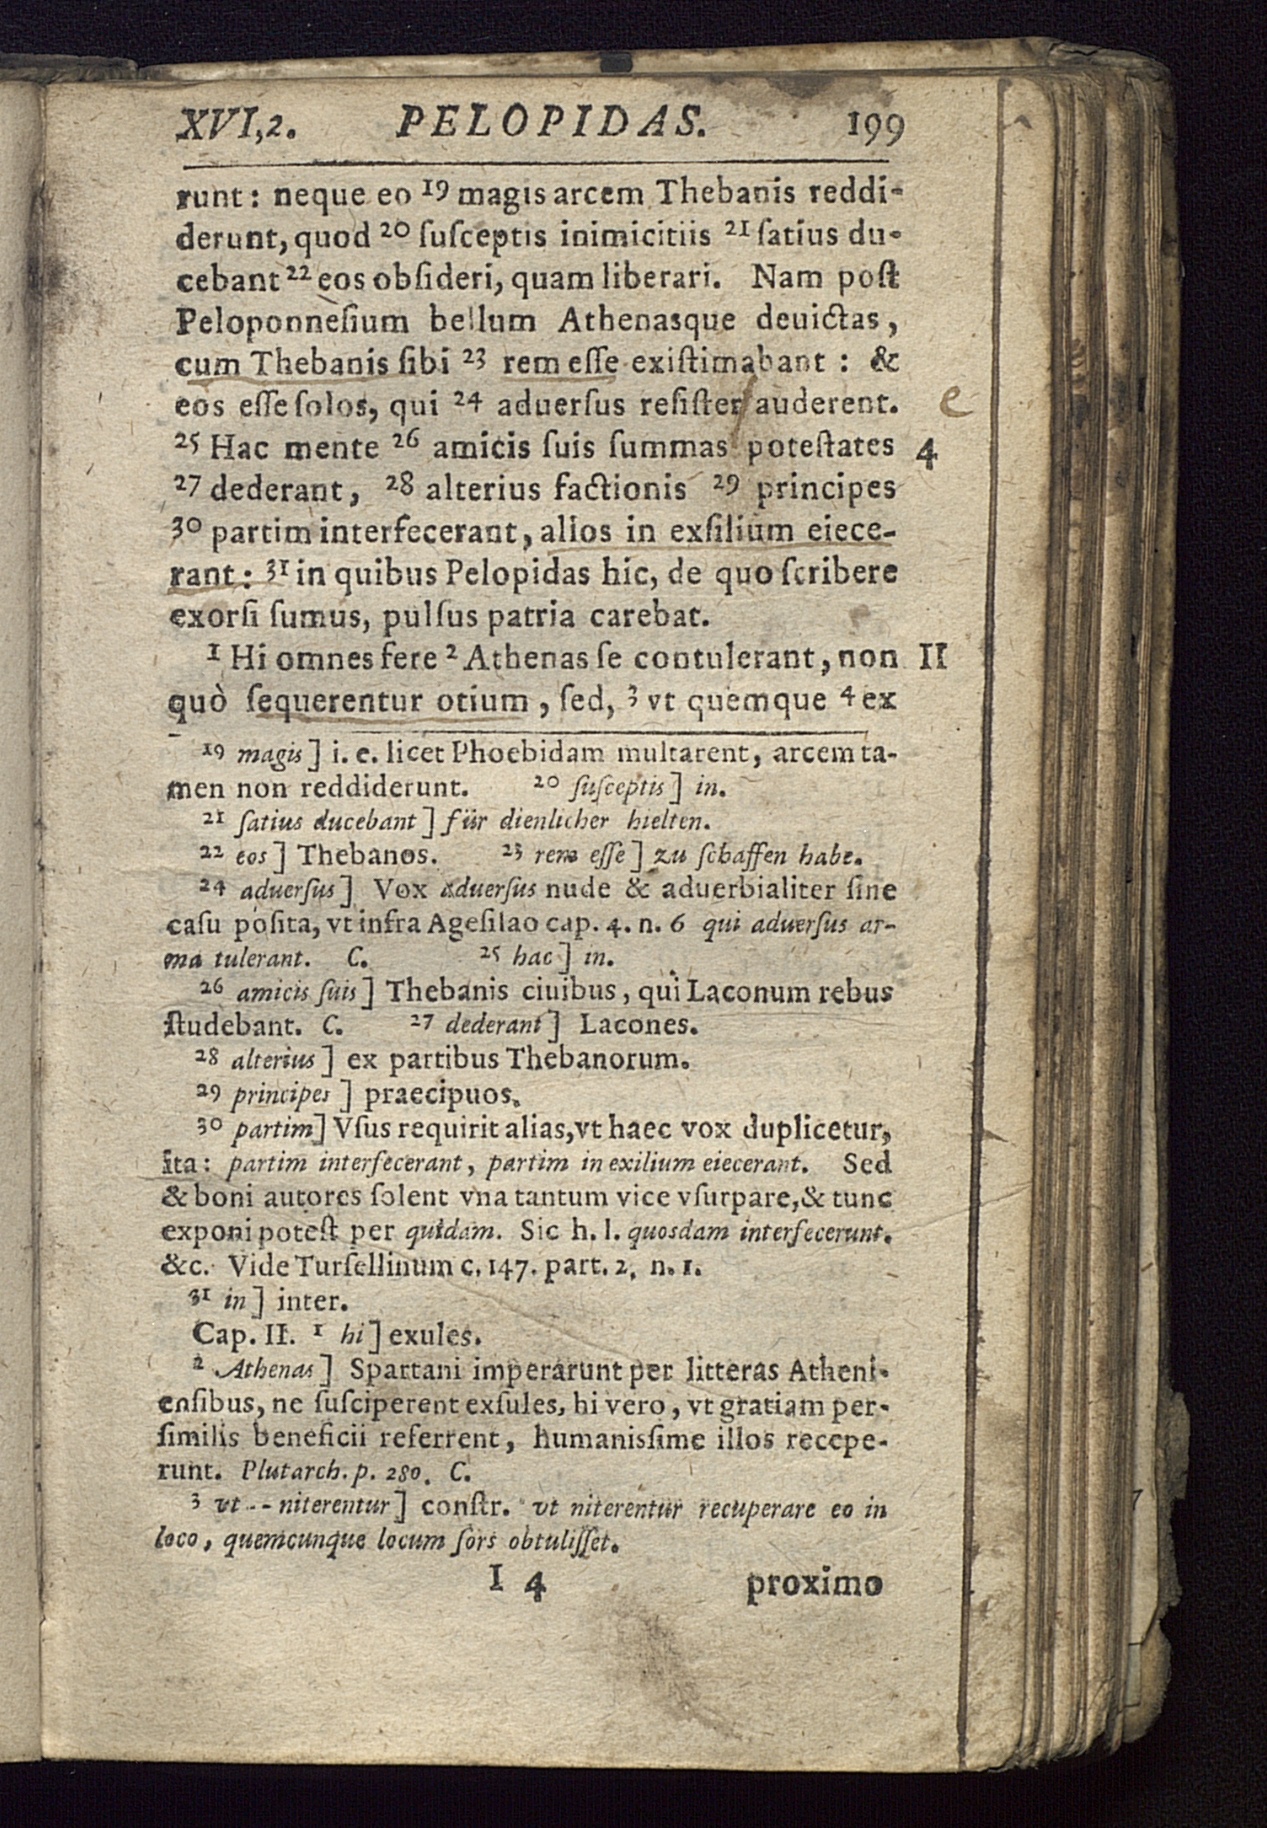 XVI,2. PELOPIDAS. 199
runt: neque eo 19 magis arcem Thebanis reddi-
derunt, quod 20 ſuſceptis inimicitiis 21 ſatius du-
cebant 22 eos obſideri, quam liberari. Nam poſt
Peloponneſium bellum Athenasque deuictas,
cum Thebanis ſibi 23 rem eſſe exiſtimabant: &
eos eſſe ſolos, qui 24 aduerſus reſiſter auderent. e
25 Hac mente 26 amicis ſuis ſummas poteſtates 4
27 dederant, 28 alterius factionis 29 principes
30 partim interfecerant, alios in exſilium eiece-
rant: 31 in quibus Pelopidas hic, de quo ſcribere
exorſi ſumus, pulſus patria carebat.
1 Hi omnes fere 2 Athenas ſe contulerant, non II
quò ſequerentur otium, ſed, 3 vt quemque 4 ex
19 magis] i. e. licet Phoebidam multarent, arcem ta-
men non reddiderunt. 20 ſuſceptis] in.
21 ſatius ducebant] für dienlicher hielten.
22 eos] Thebanos. 23 rem eſſe] zu ſchaffen habe.
24 aduerſus] Vox aduerſus nude & aduerbialiter ſine
caſu poſita, vt infra Ageſilao cap. 4. n. 6 qui aduerſus ar-
ma tulerant. C. 25 hac] in.
26 amicis ſuis] Thebanis ciuibus, qui Laconum rebus
ſtudebant. C. 27 dederant] Lacones.
28 alterius] ex partibus Thebanorum.
29 principes] praecipuos.
30 partim] Vſus requirit alias, vt haec vox duplicetur,
ita: partim interfecerant, partim in exilium eiecerant. Sed
& boni autores ſolent vna tantum vice vſurpare, & tunc
exponi poteſt per quidam. Sic h. l. quosdam interfecerunt.
&c. Vide Turſellinum c. 147. part. 2. n. 1.
31 in] inter.
Cap. II. 1 hi] exules.
2 Athenas] Spartani imperarunt per litteras Atheni-
enſibus, ne ſuſciperent exſules, hi vero, vt gratiam per-
ſimilis beneficii referrent, humaniſſime illos recepe-
runt. Plutarch. p. 280. C.
3 vt -- niterentur] conſtr. vt niterentur recuperare eo in
loco, quemcunque locum ſors obtuliſſet.
I 4 proximo